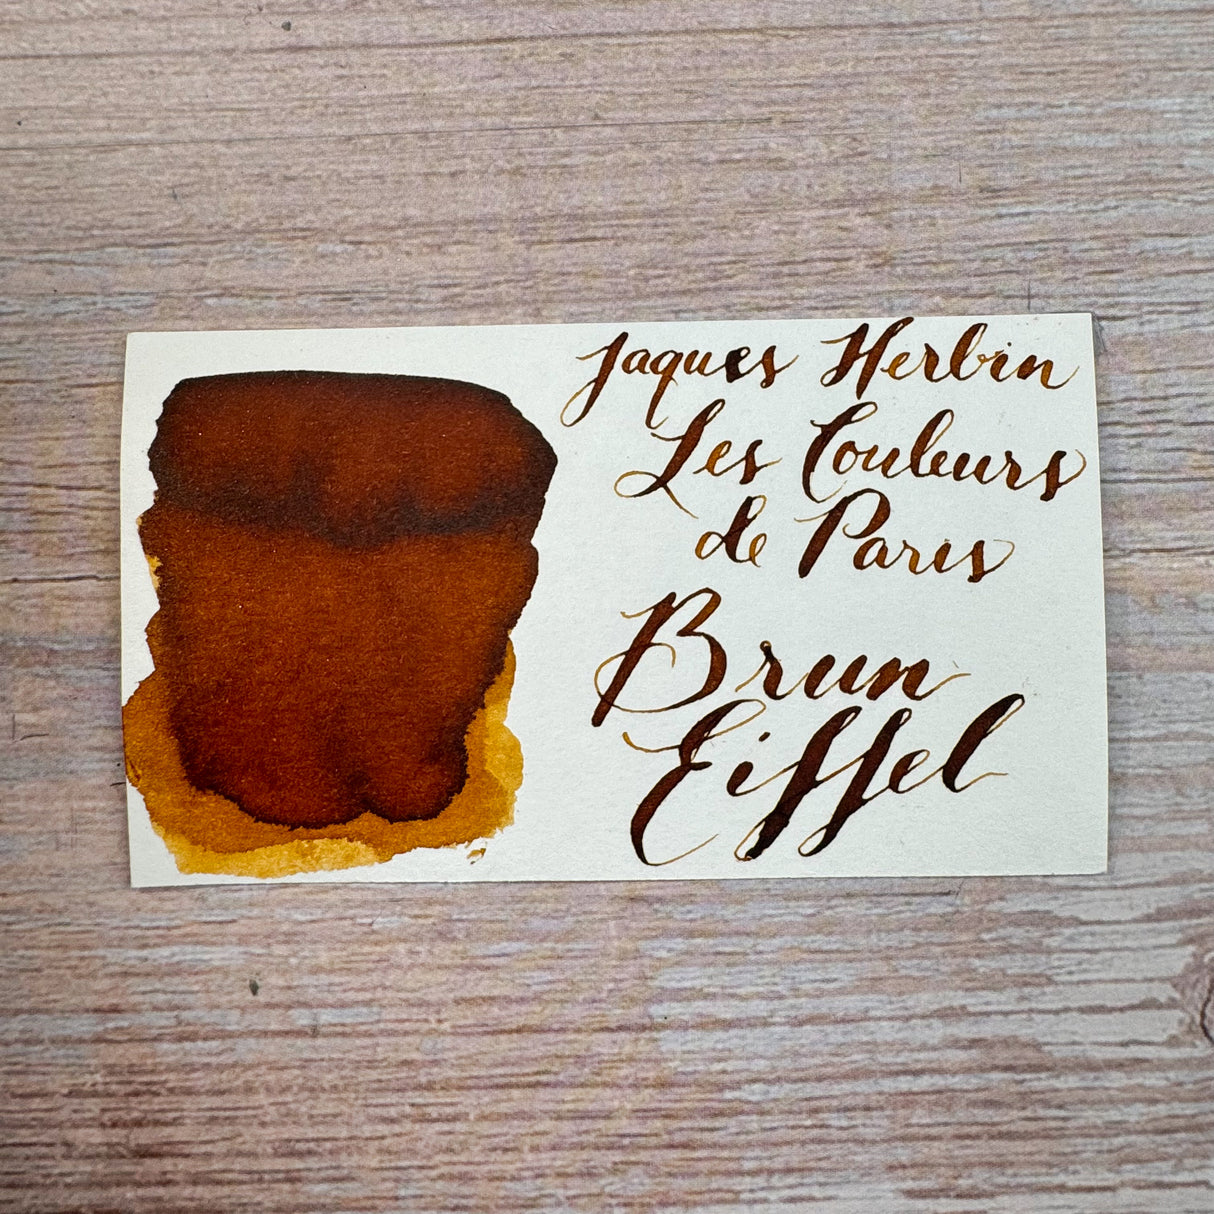 Jaques Herbin
Les Couleurs
de Paris
Brun
Eiffel